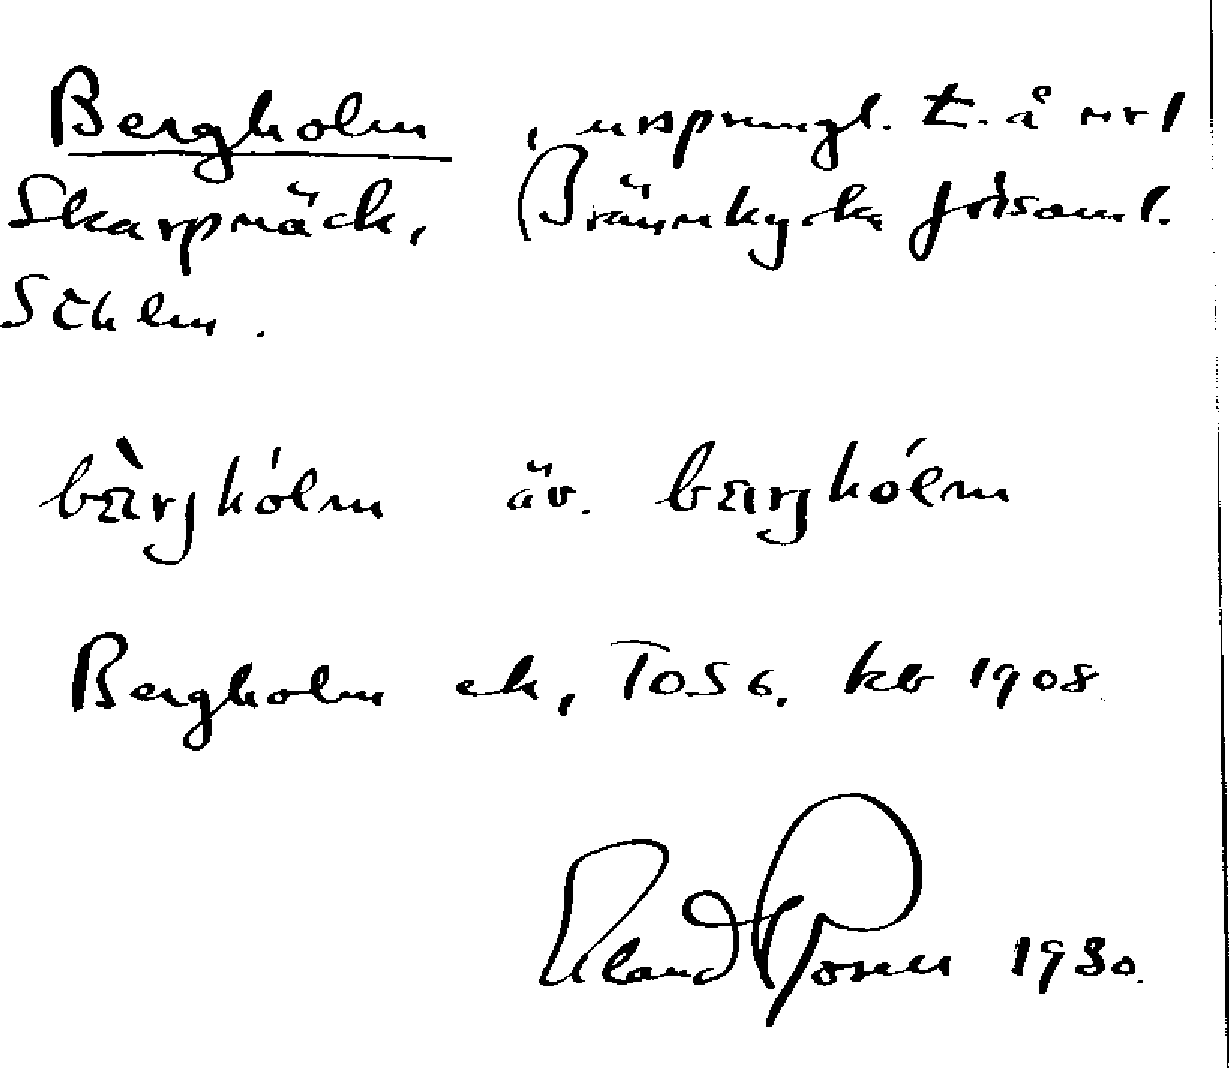 Bergholm, ursprungl. t. å nr 1
Skarpnäck, Brännkyrka församl.
Sthlm.
bärjhólm äv. bärjhólm
Bergholm ek, To56. kb 1908
1980.